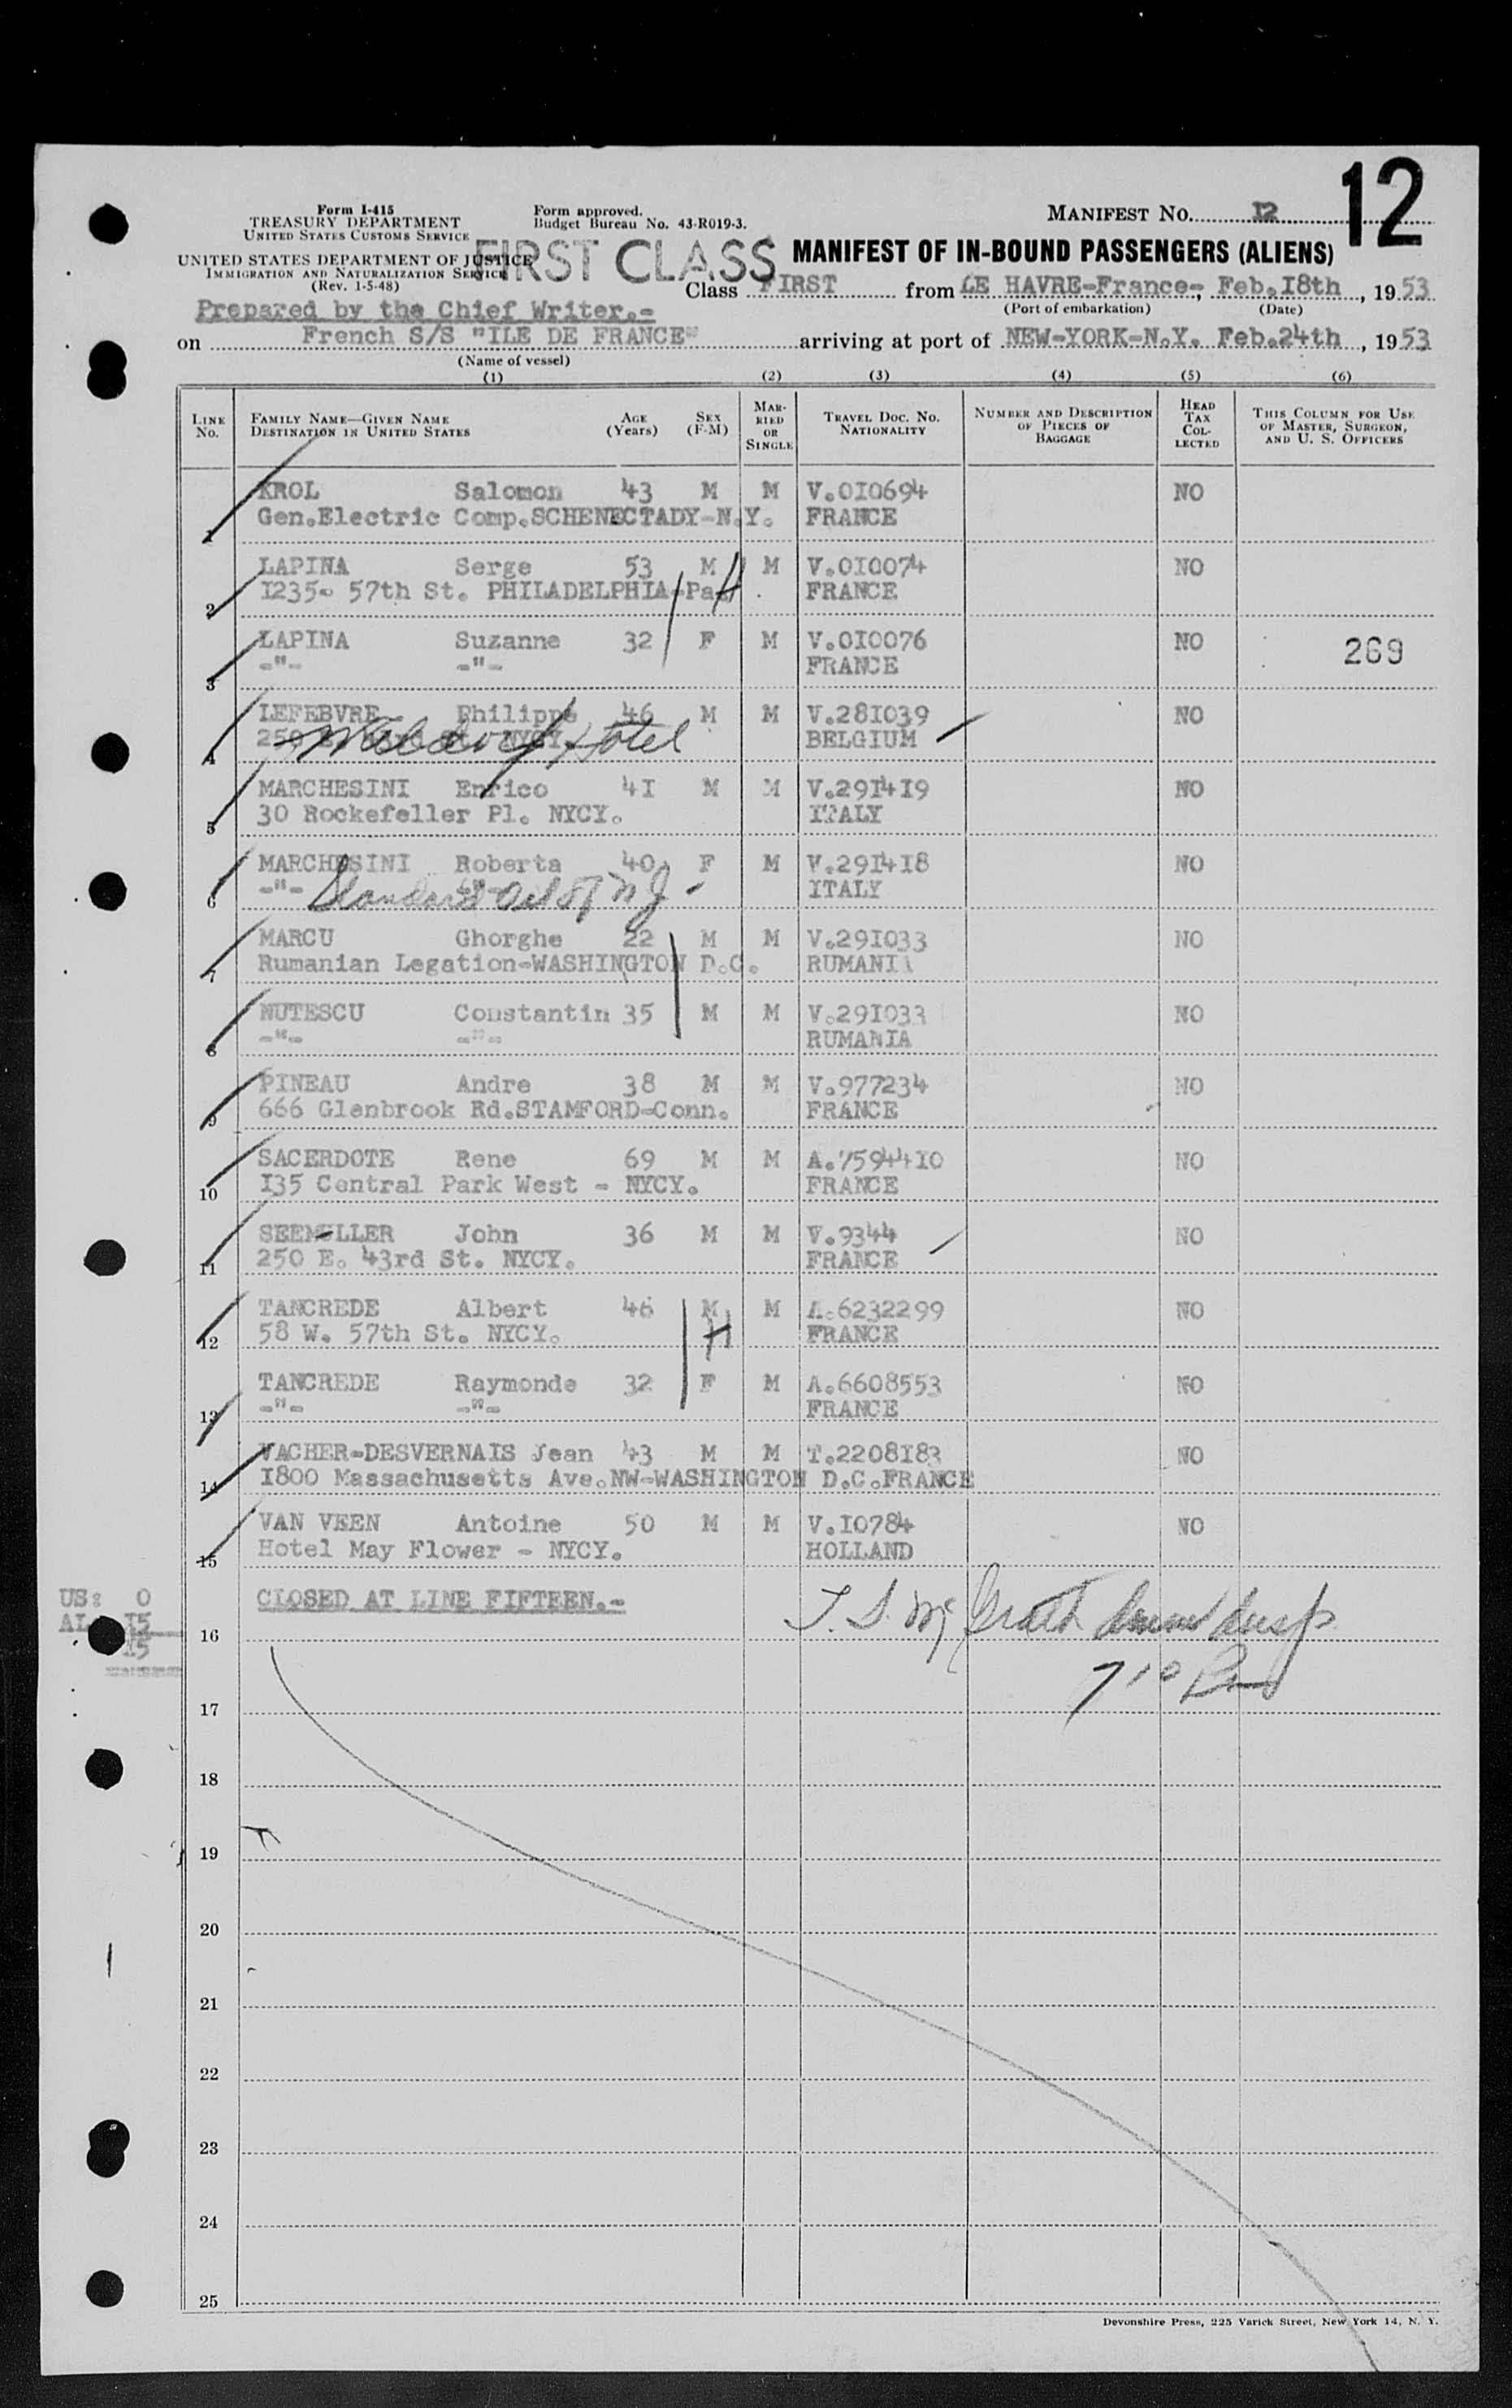 12
Form I-415
TREASURY DEPARTMENT
UNITED STATES CUSTOMS SERVICE
UNITED STATES DEPARTMENT OF JUSTICE
IMMIGRATION AND NATURALIZATION SERVICE
(Rev. 1-5-48)
Form approved.
Budget Bureau No. 43-R019-3.
MANIFEST No. I2
FIRST CLASS
MANIFEST OF IN-BOUND PASSENGERS (ALIENS)
Class FIRST from LE HAVRE-France-, Feb.I8th, 1953
(Port of embarkation) (Date)
Prepared by the Chief Writer.-
on French S/S "ILE DE FRANCE" arriving at port of NEW-YORK-N.Y. Feb.24th, 1953
(Name of vessel)
(1) (2) (3) (4) (5) (6)
LINE No. FAMILY NAME—GIVEN NAME DESTINATION IN UNITED STATES AGE (Years) SEX (F-M) MARRIED OR SINGLE TRAVEL DOC. NO. NATIONALITY NUMBER AND DESCRIPTION OF PIECES OF BAGGAGE HEAD TAX COLLECTED THIS COLUMN FOR USE OF MASTER, SURGEON, AND U. S. OFFICERS
KROL Salomon 43 M M V.0I0694 NO
1 Gen.Electric Comp.SCHENECTADY-N.Y. FRANCE
LAPINA Serge 53 M M V.0I0074 NO
2 I235- 57th St. PHILADELPHIA-Pa. H FRANCE
LAPINA Suzanne 32 F M V.0I0076 NO 269
3 -"- -"- FRANCE
LEFEBVRE Philippe 46 M M V.28I039 NO
4 250 NYCY. Waldorf Hotel BELGIUM
MARCHESINI Enrico 4I M M V.29I4I9 NO
5 30 Rockefeller Pl. NYCY. ITALY
MARCHESINI Roberta 40 F M V.29I4I8 NO
6 -"- -"- Standard Oil of N J - ITALY
MARCU Ghorghe 22 M M V.29I033 NO
7 Rumanian Legation-WASHINGTON D.C. RUMANIA
NUTESCU Constantin 35 M M V.29I033 NO
8 -"- -"- RUMANIA
PINEAU Andre 38 M M V.977234 NO
9 666 Glenbrook Rd.STAMFORD-Conn. FRANCE
SACERDOTE Rene 69 M M A.75944I0 NO
10 I35 Central Park West - NYCY. FRANCE
SEEMULLER John 36 M M V.9344 NO
11 250 E. 43rd St. NYCY. FRANCE
TANCREDE Albert 46 M M A.6232299 NO
12 58 W. 57th St. NYCY. H FRANCE
TANCREDE Raymonde 32 F M A.6608553 NO
13 -"- -"- FRANCE
VACHER-DESVERNAIS Jean 43 M M T.2208I83 NO
14 I800 Massachusetts Ave.NW-WASHINGTON D.C.FRANCE
VAN VEEN Antoine 50 M M V.I0784 NO
15 Hotel May Flower - NYCY. HOLLAND
US: 0
AL I5
I5
16 CLOSED AT LINE FIFTEEN.-
McGrath
17
18
19
20
21
22
23
24
25
Devonshire Press, 225 Varick Street, New York 14, N. Y.